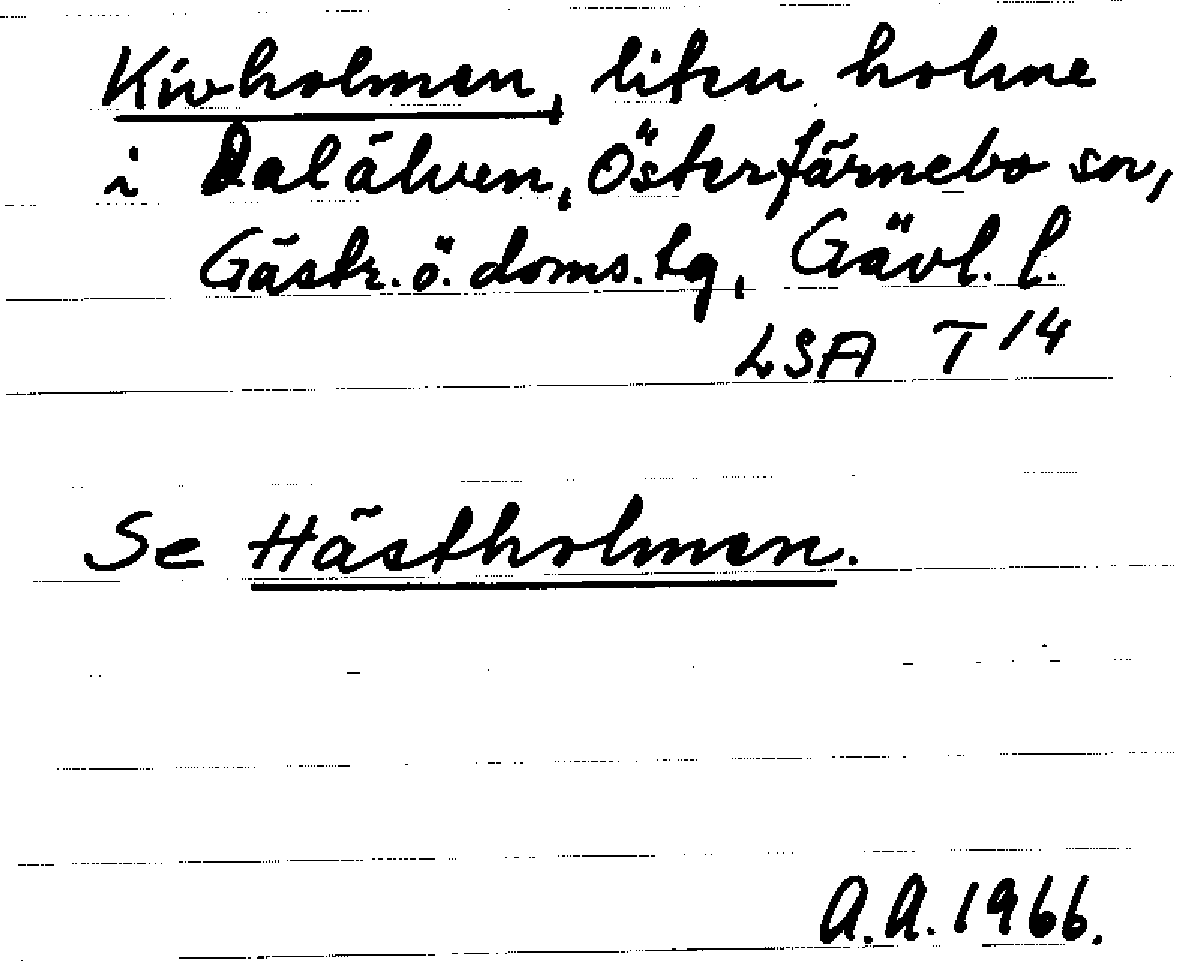 Kivholmen, liten holme
i Dalälven, Österfärnebo sn,
Gästr. ö. doms. tg, Gävl. l.
LSA T 14
Se Hästholmen.
A.A. 1966.